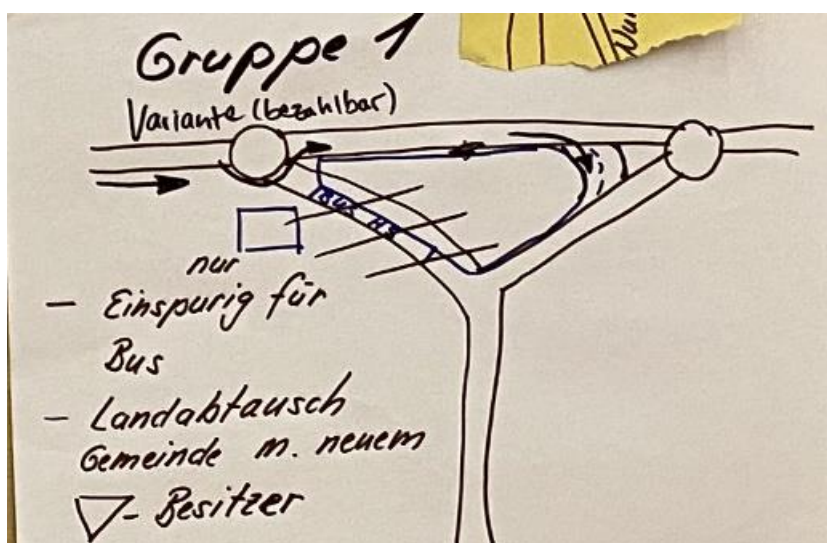 Gruppe 1
Variante (bezahlbar)
BUS HS
nur
- Einspurig für
Bus
- Landabtausch
Gemeinde m. neuem
▽- Besitzer